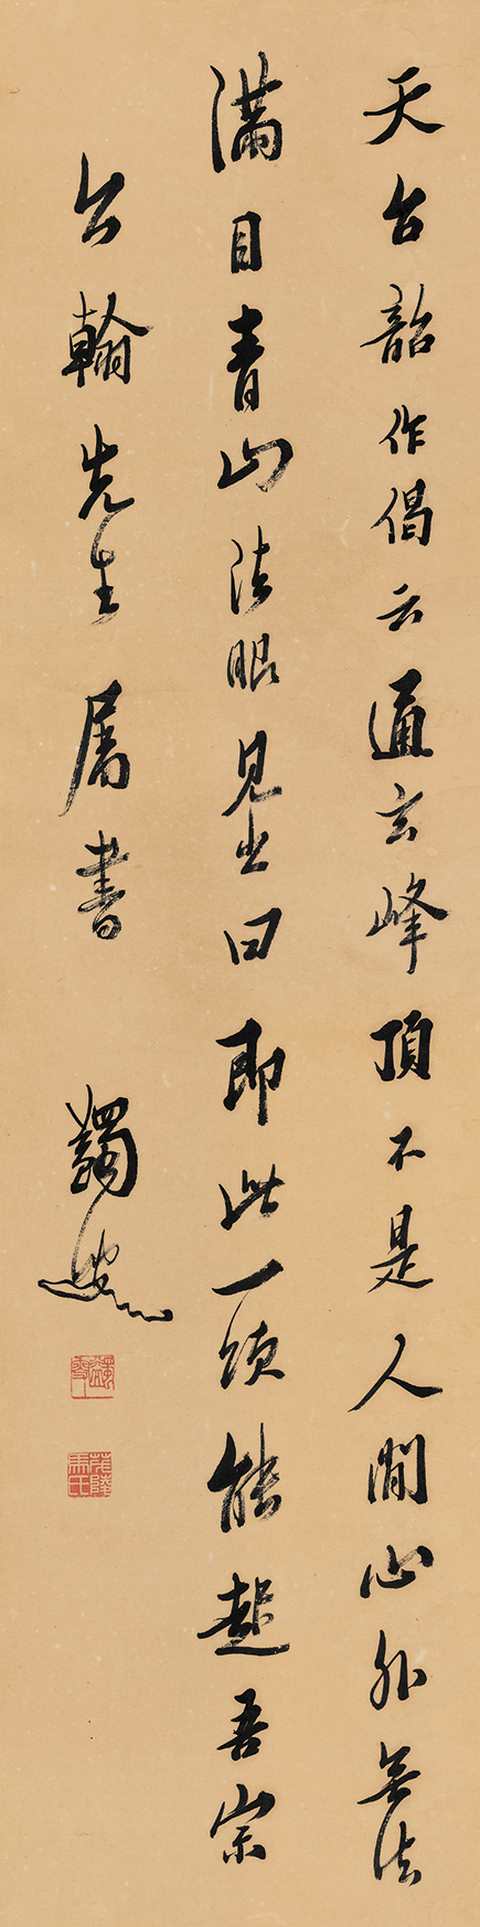 天台韶作偈云通玄峰頂不是人間心外無法
滿目青山法眼見之曰即此一頌能起吾宗
公翰先生屬書
蠲叟
蠲叟